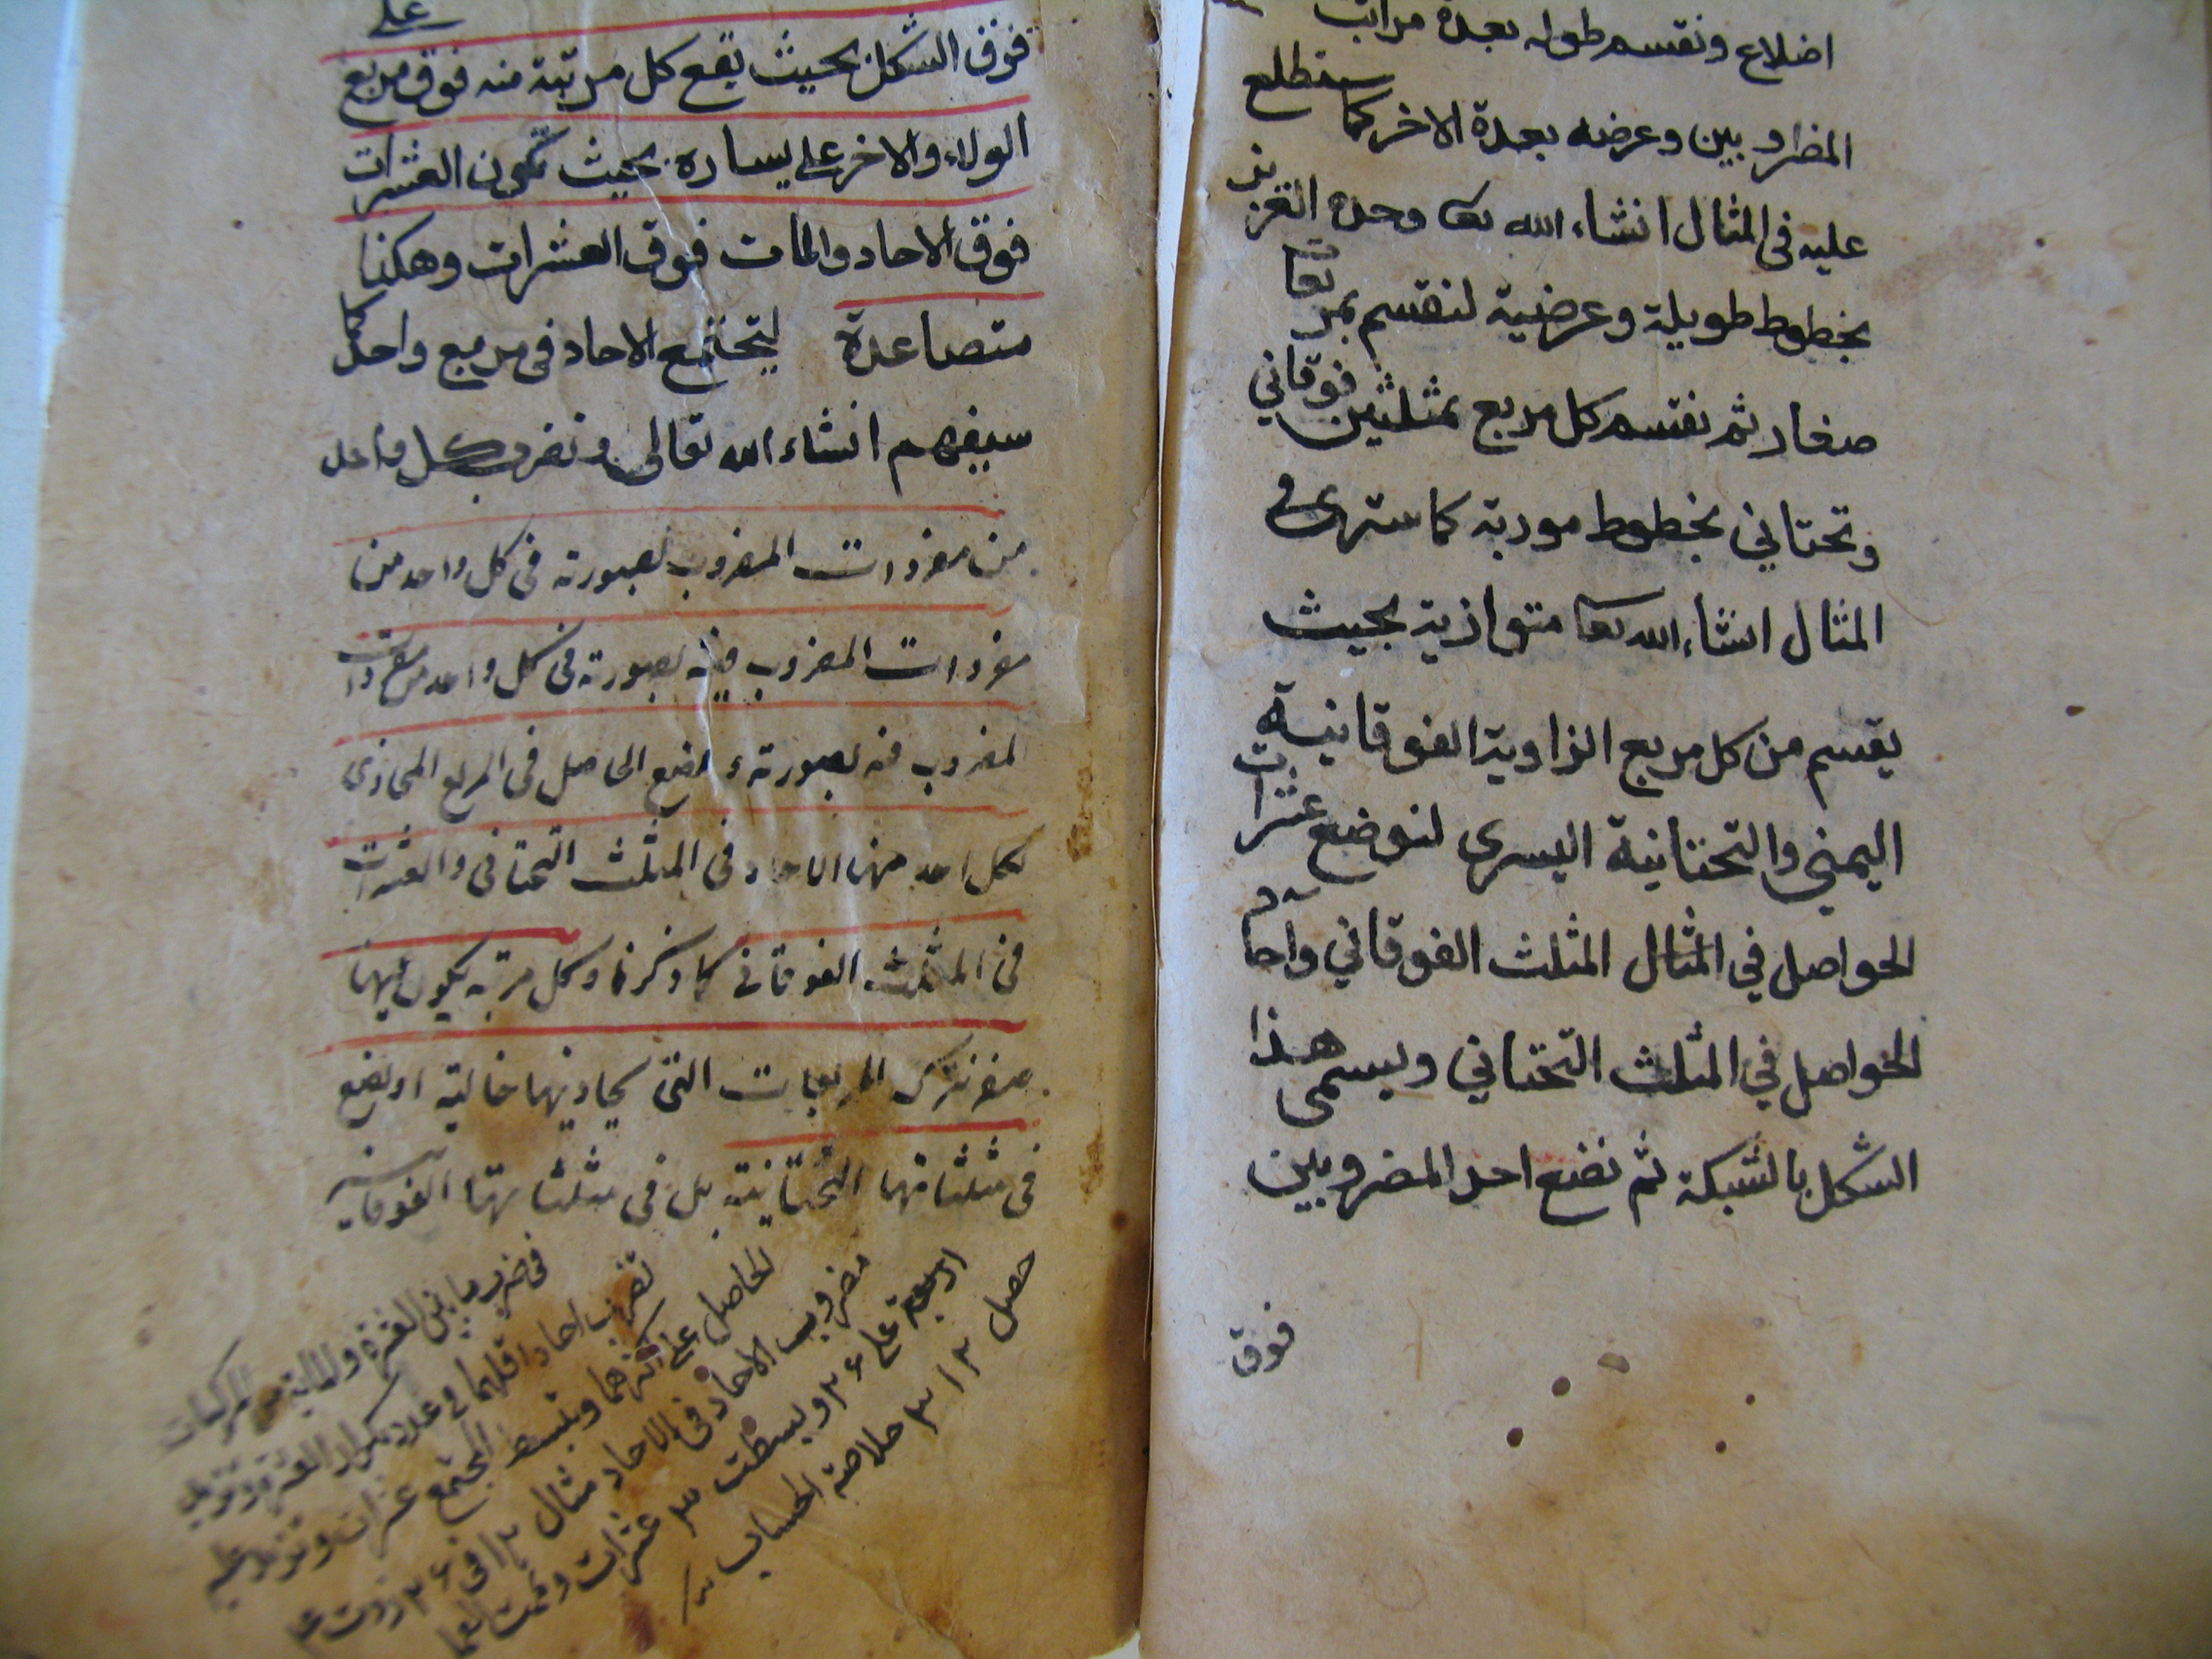 اضلاع ونقسم طوله بعدة مراتب
المضروبين وعرضه بعدة الاخر كما ستطلع
عليه فى المثال انشاء الله تعا وحده
بخطوط طويلة وعرضية لنقسم بمربعا
صغار ثم نقسم كل مربع بمثلثين فوقاني
وتحتاني بخطوط موربة كما سترى في
المثال انشاء الله تعا متوازية بحيث
يقسم من كل مربع الزاوية الفوقانية
اليمنى والتحتانية اليسرى لنوضع عشرات
الحواصل في المثال المثلث الفوقاني وآحاد
الحواصل في المثلث التحتاني ويسمى هذا
الشكل بالشبكة ثم نضع احد المضروبين
فوق
على
فوق الشكل بحيث تقع كل مرتبة منه فوق مربع
الولاء والاخر على يساره بحيث تكون العشرات
فوق الاحاد والمات فوق العشرات وهكذا
متصاعدة لتجتمع الاحاد فى مربع واحد كما
سيفهم انشاء الله تعالى ونضرب كل واحد
من مفردات المضروب بصورته فى كل واحد من
مفردات المضروب فيه بصورته فى كل واحد من مفردات
المضروب فيه بصورته ونضع الحاصل فى المربع المحاذى
لكل احد منها الاحاد فى المثلث التحتانى والعشرات
فى المثلث الفوقانى كما ذكرنا وكل مرتبة يكون فيها
صفر نترك المربعات التى يحاذيها خالية او نضع
فى مثلثاتها التحتانية بل فى مثلثاتها الفوقانية
فى ضرب ما بين العشرة والماية من المركبات
تضرب احاد اقلهما فى عدد تكرار العشرة وتزيد
الحاصل على اكثرهما وتبسط المجتمع عشرات وتزيد عليه
مضروب الاحاد فى الاحاد مثال ١٢ فى ٢٦ زدت
اربعة على ٢٦ وبسطت ٣ عشرات وتممت العمل
حصل ٣١٢ خلاصة الحساب